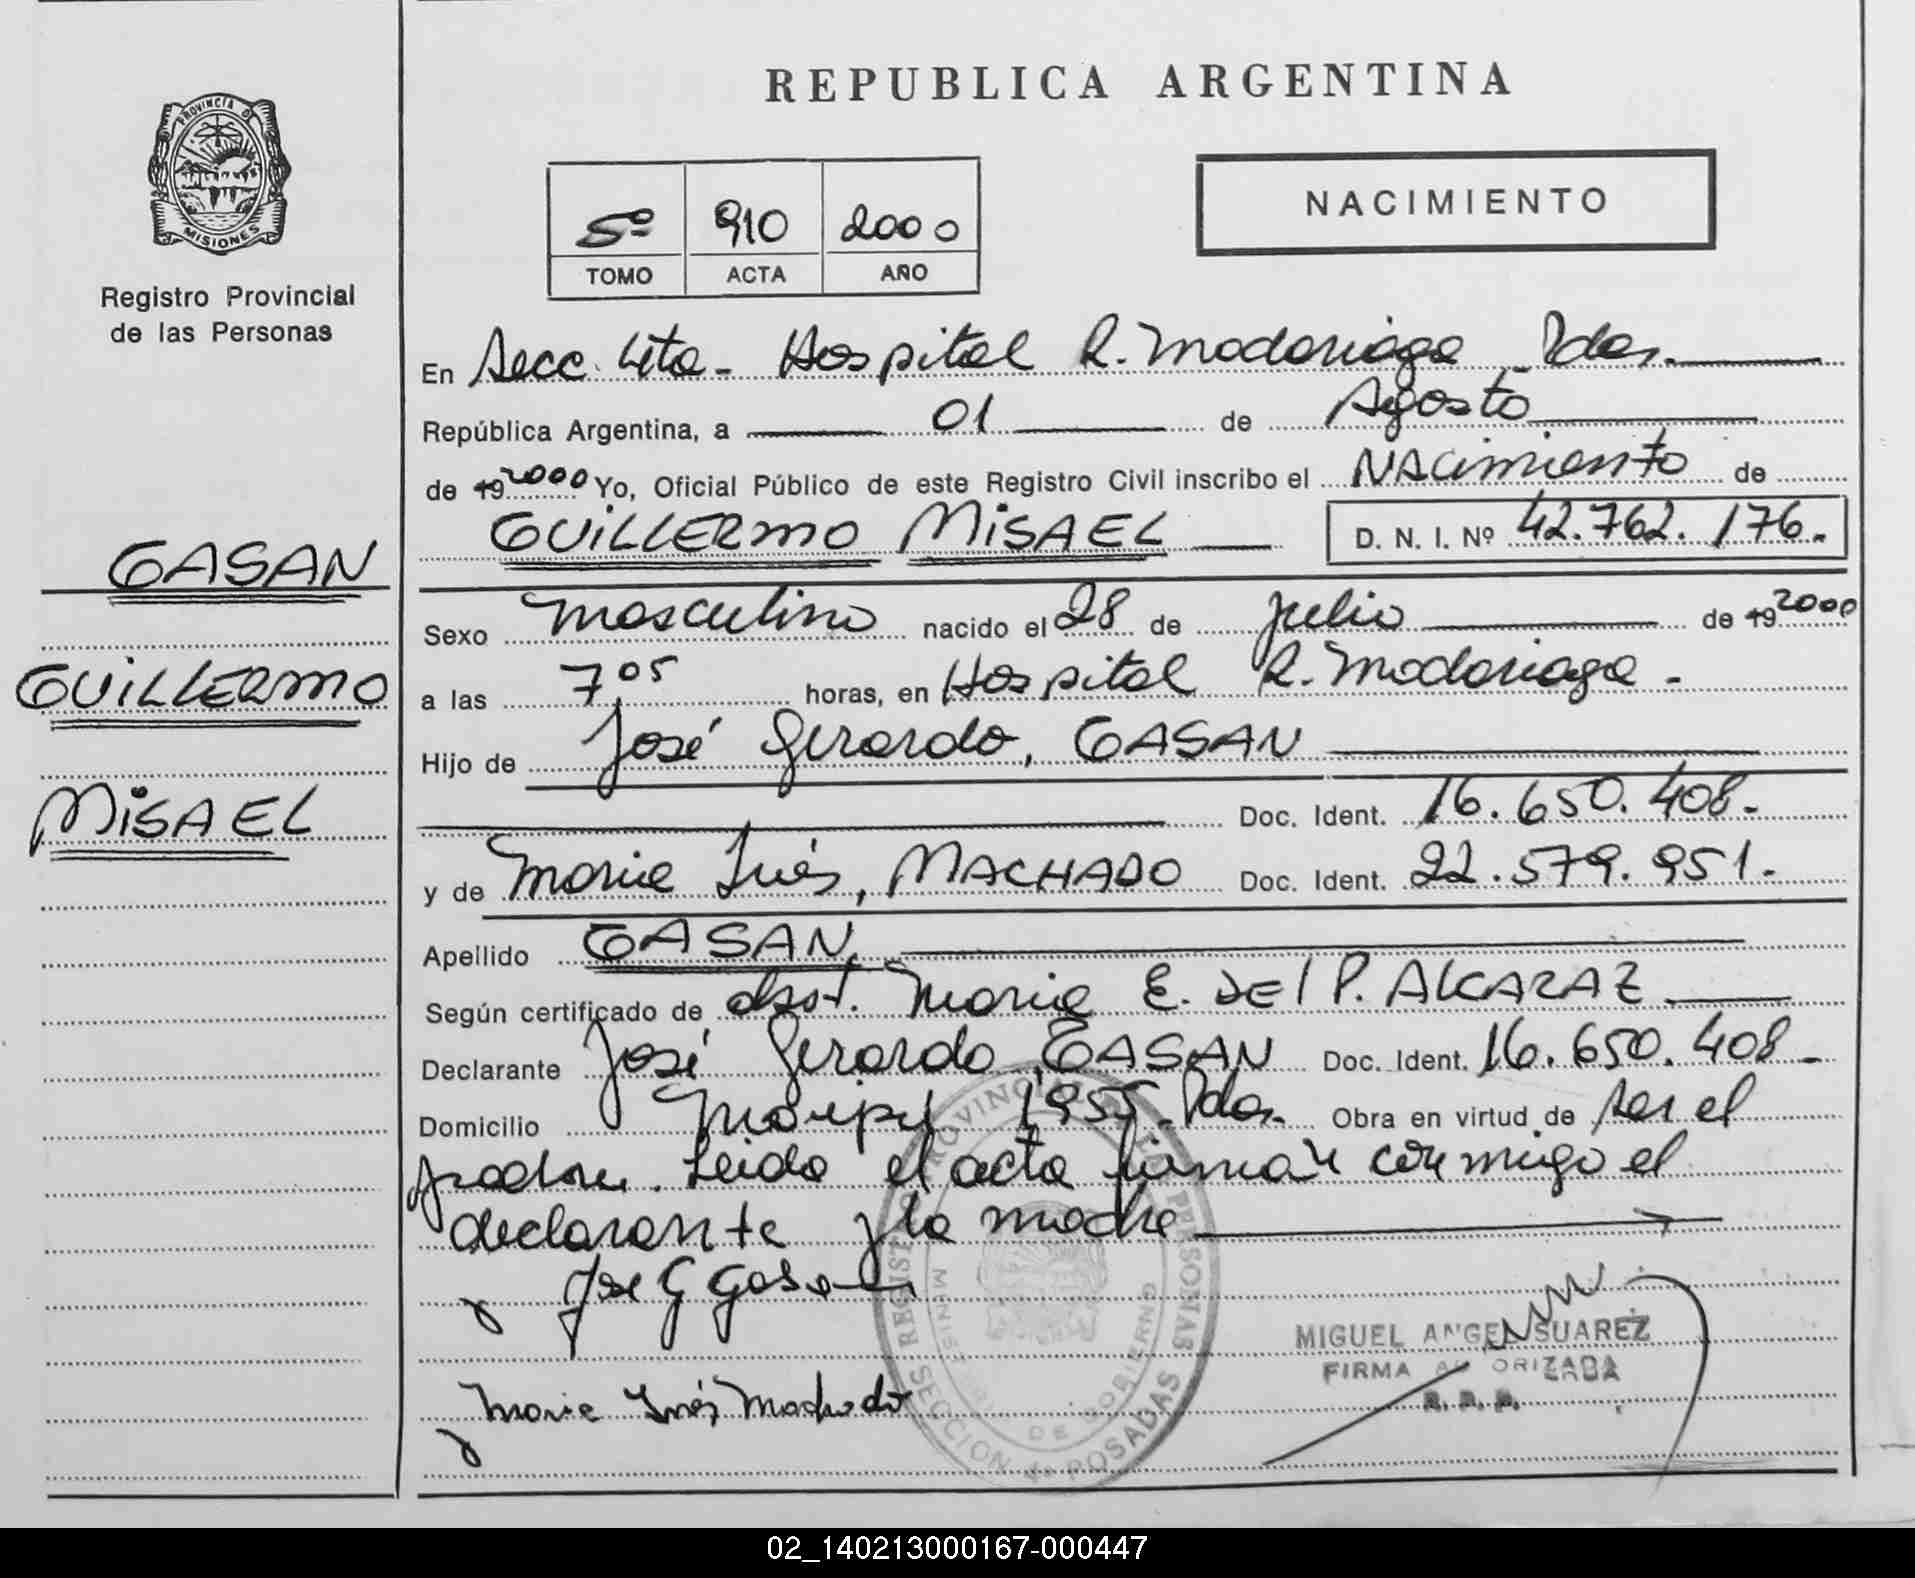 REPUBLICA ARGENTINA
PROVINCIA DE
MISIONES
Registro Provincial
de las Personas
5º 910 2000
TOMO ACTA AÑO
NACIMIENTO
En Secc. 4ta - Hospital R. Madariaga Pdas.
República Argentina, a 01 de Agosto
de 19 2000 Yo, Oficial Público de este Registro Civil inscribo el NAcimiento de
GUILLERMO MISAEL D. N. I. Nº 42.762.176.-
GASAN
GUILLERMO
MISAEL
Sexo masculino nacido el 28 de Julio de 19 2000
a las 7 05 horas, en Hospital R. Madariaga -
Hijo de José Gerardo, GASAN
Doc. Ident. 16.650.408.-
y de Maria Inés, MACHADO Doc. Ident. 22.579.951.-
Apellido GASAN,
Según certificado de obst. Maria E. DEl P. ALCARAZ
Declarante José Gerardo, GASAN Doc. Ident. 16.650.408.-
Domicilio 1955. Pdas. Obra en virtud de ser el
padre. Leida el acta firman conmigo el
declarante y la madre
Jose G Gasan
Maria Inés Machado
REGISTRO PROVINCIAL DE LAS PERSONAS
MINISTERIO DE GOBIERNO
SECCION 4a POSADAS
MIGUEL ANGEL SUAREZ
FIRMA AUTORIZADA
R. P. P.
02_140213000167-000447